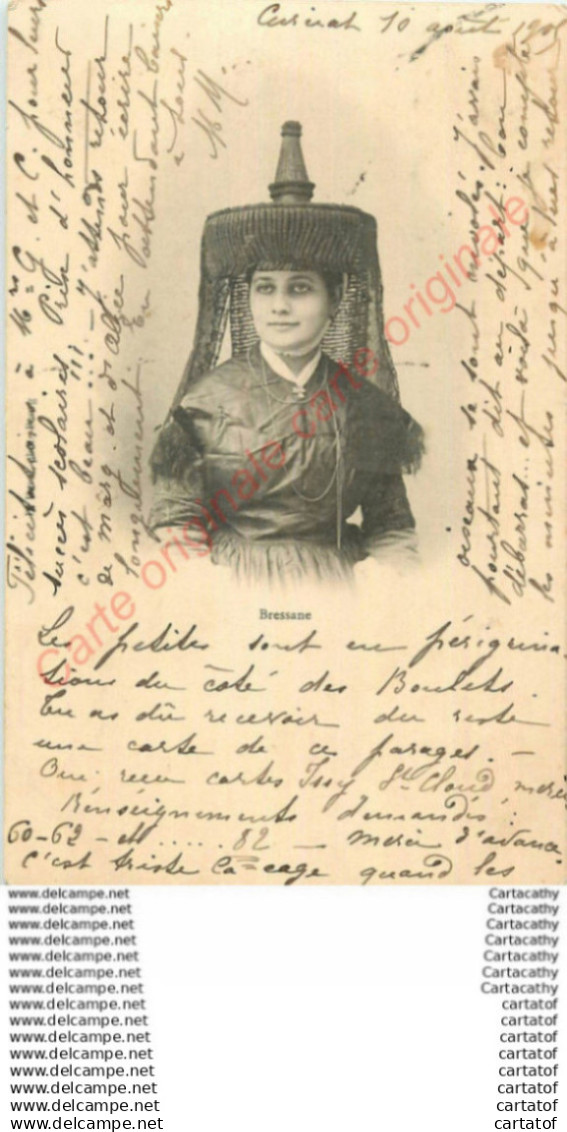 Curciat 10 août 190
Bressane
Les petites sont en pérégrina-
tions du côté des Boulets.
Tu as dû recevoir du reste
une carte de ces parages. —
Oui reçu cartes Issy St Cloud, merci
Renseignements demandés :
60-62 - et ..... 82 — merci d'avance
c'est triste la cage quand les
oiseaux se sont envolés. J'avais
pourtant dit au départ : bon
débarras... et voilà que je compte
les minutes jusqu'à votre retour
Félicitations à M G. et C. pour leurs
succès scolaires Prix d'honneur
c'est beau !!! — J'attends retour
de marg. et d'Alice pour écrire
longuement. En attendant baisers
à tous.
M
carte originale carte originale carte originale
www.delcampe.net Cartacathy
www.delcampe.net Cartacathy
www.delcampe.net Cartacathy
www.delcampe.net Cartacathy
www.delcampe.net Cartacathy
www.delcampe.net Cartacathy
www.delcampe.net Cartacathy
www.delcampe.net cartatof
www.delcampe.net cartatof
www.delcampe.net cartatof
www.delcampe.net cartatof
www.delcampe.net cartatof
www.delcampe.net cartatof
www.delcampe.net cartatof
www.delcampe.net cartatof